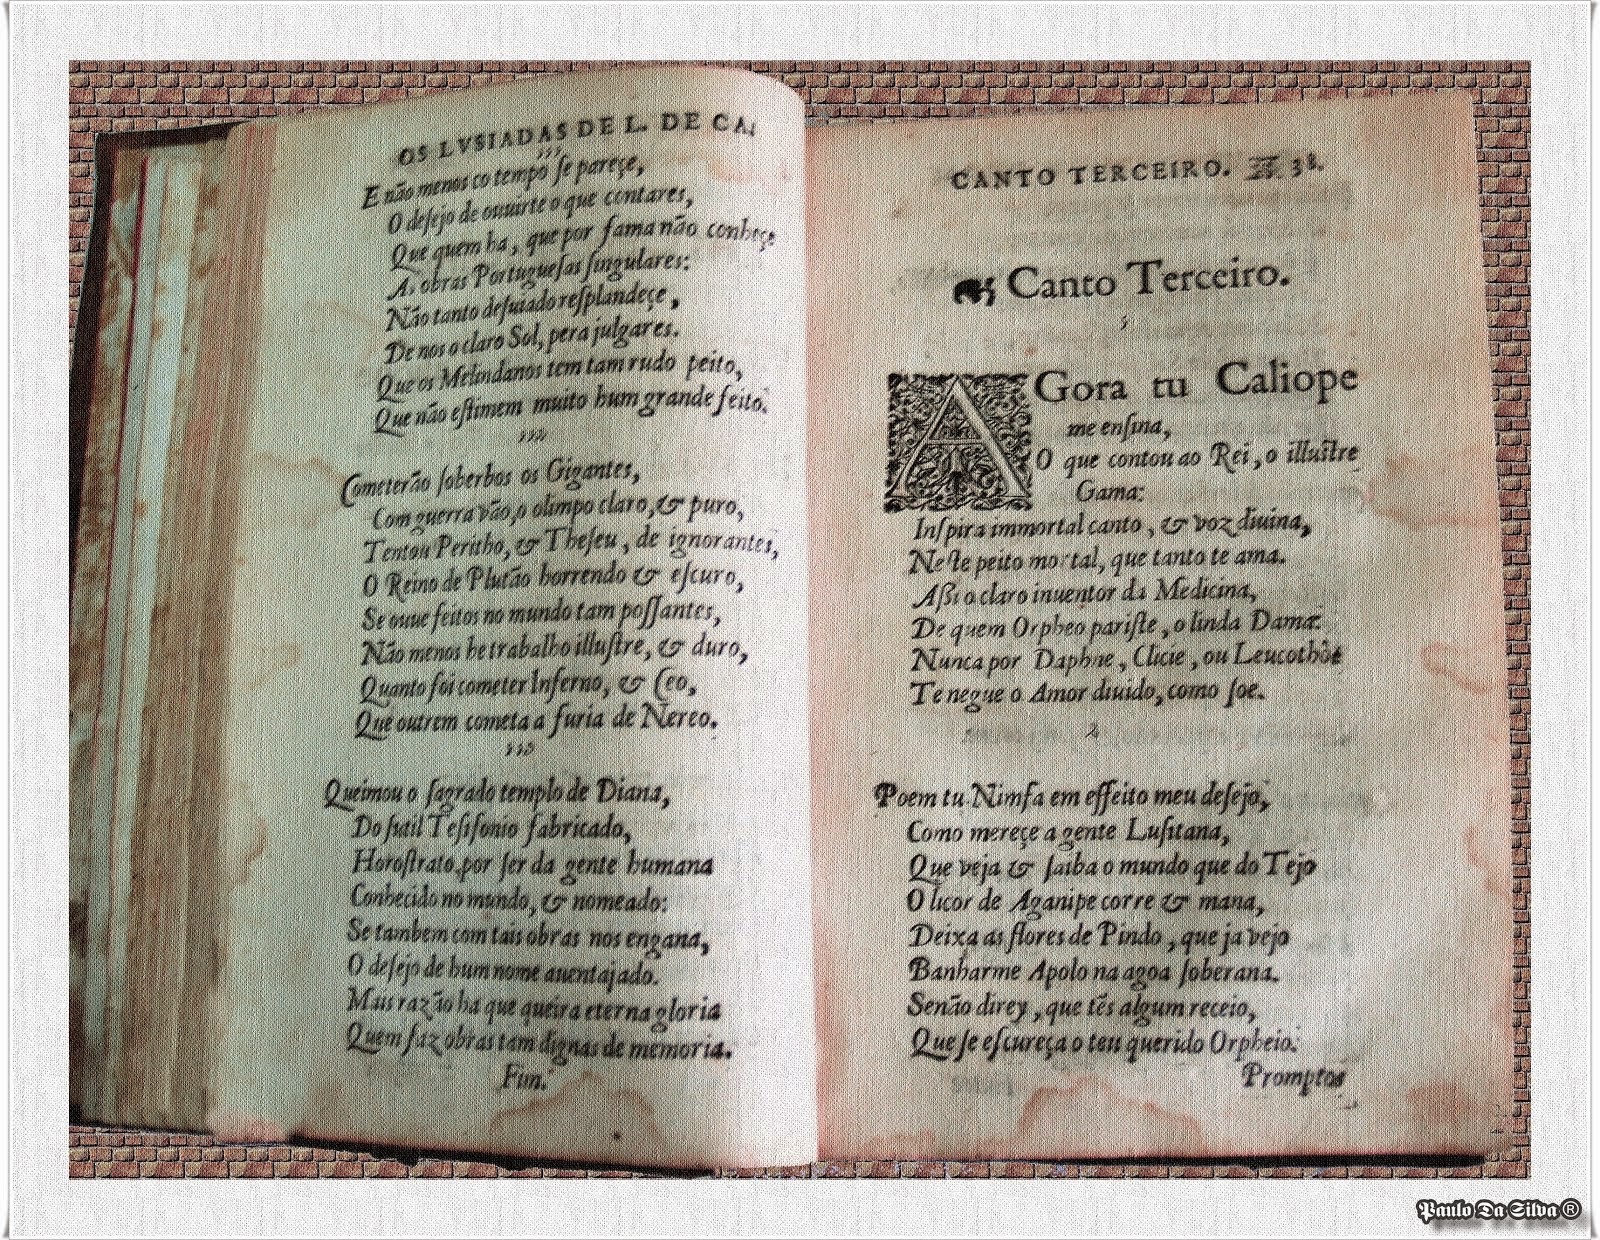 OS LVSIADAS DE L. DE CA.
E não menos co tempo ſe pareçe,
O deſejo de ouuirte o que contares,
Que quem ha, que por fama não conheçe
As obras Portugueſas ſingulares:
Não tanto deſuiado reſplandeçe,
De nos o claro Sol, pera julgares.
Que os Melindanos tem tam rudo peito,
Que não eſtimem muito hum grande feito.
Cometerão ſoberbos os Gigantes,
Com guerra vão, o olimpo claro, & puro,
Tentou Peritho, & Theſeu, de ignorantes,
O Reino de Plutão horrendo & eſcuro,
Se ouue feitos no mundo tam poſſantes,
Não menos he trabalho illuſtre, & duro,
Quanto foi cometer Inferno, & Ceo,
Que outrem cometa a furia de Nereo.
Queimou o ſagrado templo de Diana,
Do ſutil Teſifonio fabricado,
Horoſtrato, por ſer da gente humana
Conhecido no mundo, & nomeado:
Se tambem com tais obras nos engana,
O deſejo de hum nome auentajado.
Mais razão ha que queira eterna gloria
Quem faz obras tam dignas de memoria.
Fim.
CANTO TERCEIRO. 38.
Canto Terceiro.
AGora tu Caliope
me enſina,
O que contou ao Rei, o illuſtre
Gama:
Inſpira immortal canto, & voz diuina,
Neſte peito mortal, que tanto te ama.
Aßi o claro inuentor da Medicina,
De quem Orpheo pariſte, o linda Dama:
Nunca por Daphne, Clicie, ou Leucothoe
Te negue o Amor diuido, como ſoe.
2
Poem tu Nimfa em effeito meu deſejo,
Como mereçe a gente Luſitana,
Que veja & ſaiba o mundo que do Tejo
O licor de Aganipe corre & mana,
Deixa as flores de Pindo, que ja vejo
Banharme Apolo na agoa ſoberana.
Senão direy, que tẽs algum receio,
Que ſe eſcureça o teu querido Orpheio.
Promptos
Paulo Da Silva ®